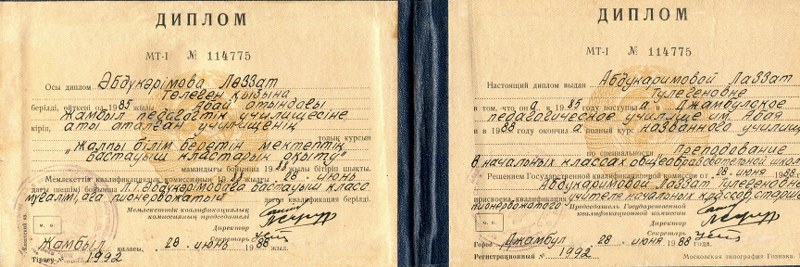 ДИПЛОМ
МТ-I № 114775
Осы диплом Әбдукәрімова Ләззат
Төлеген қызына
берілді, өйткені ол 1985 жылы Абай атындағы
Жамбыл педагогтік училищесіне
кіріп, аты аталған училищенің
толық курсын
"Жалпы білім беретін мектептің
бастауыш кластарын оқыту"
мамандығы бойынша 1988 жылы бітіріп шықты.
Мемлекеттік квалификациялық комиссияның 1988 жылғы 28 июнь
дағы шешімі бойынша Л.Т.Әбдукәрімоваға бастауыш класс
мұғалімі, аға пионервожатый
деген квалификация берілді.
Мемлекеттік квалификациялық
комиссияның председателі
Директор
Секретарь
м. о.
Жамбыл қаласы, 28 июнь 1988 жыл.
Тіркеу № 1992
ДИПЛОМ
МТ-I № 114775
Настоящий диплом выдан Абдукаримовой Лаззат
Тулегеновне
в том, что она в 1985 году поступила в Джамбулское
педагогическое училище им. Абая
и в 1988 окончила полный курс названного училища
по специальности Преподавание
в начальных классах общеобразовательной школы
Решением Государственной квалификационной комиссии от 28 июня 1988
Абдукаримовой Лаззат Тулегеновне
присвоена квалификация учителя начальных классов, старшего
пионервожатого
Председатель Государственной
квалификационной комиссии
Директор
Секретарь
м. п.
Город Джамбул 28 июня 1988 года.
Регистрационный № 1992
Московская типография Гознака.